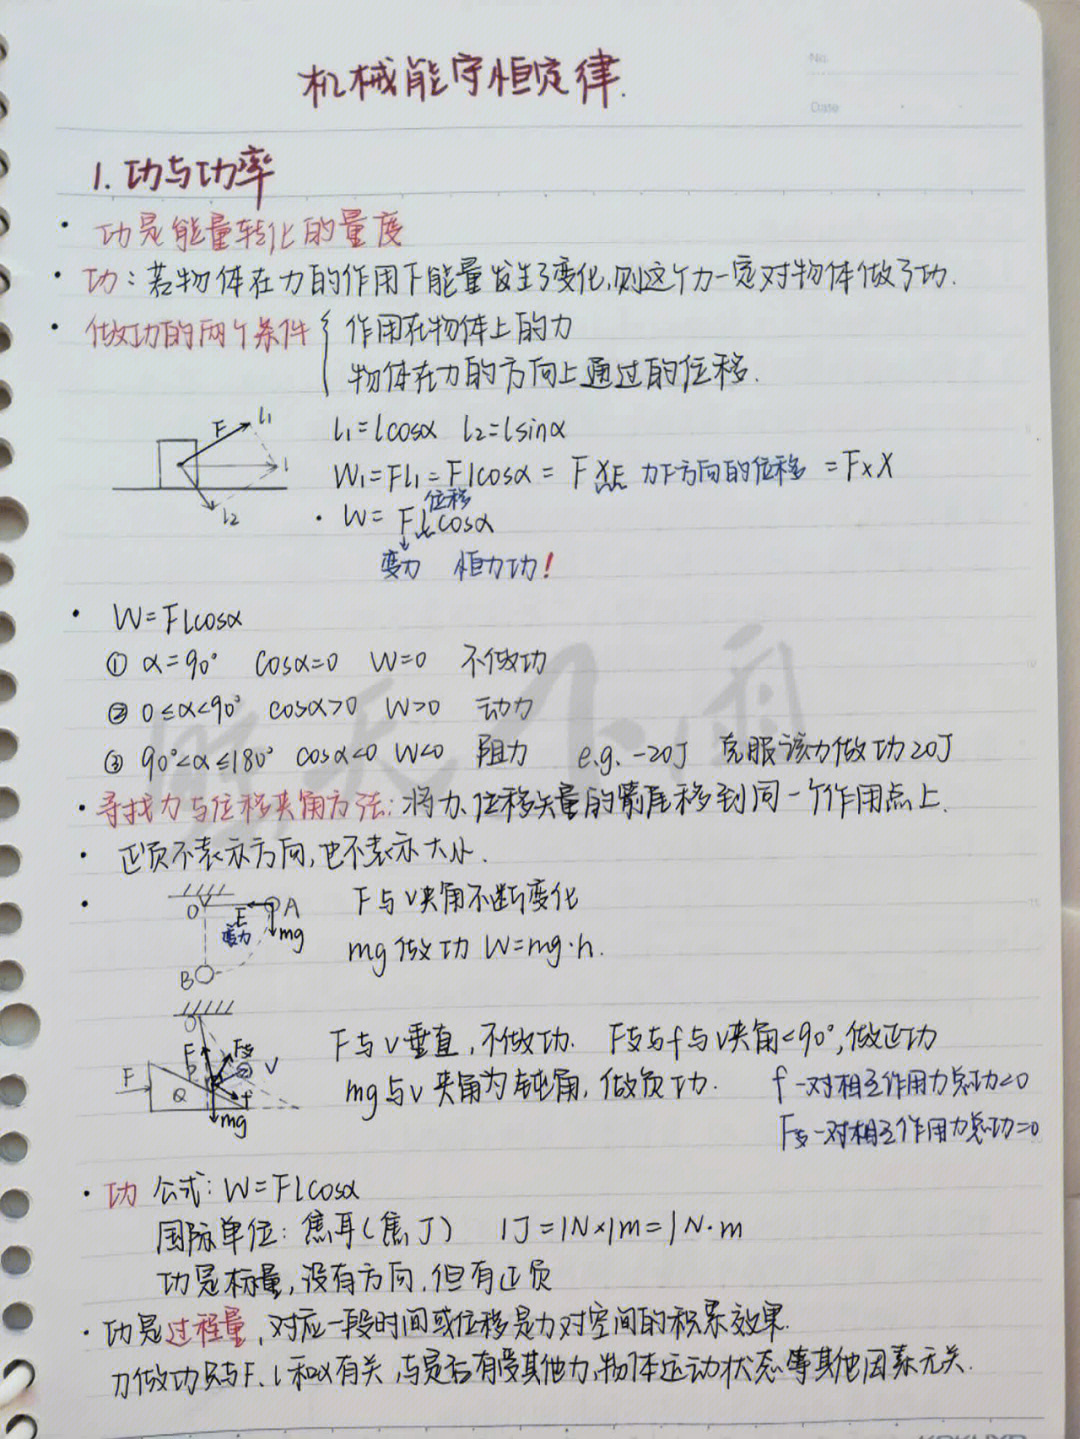 机械能守恒定律.
No.
Date
1. 功与功率
· 功是能量转化的量度
· 功：若物体在力的作用下能量发生了变化,则这个力一定对物体做了功.
· 做功的两个条件 { 作用在物体上的力
物体在力的方向上通过的位移.
F l₁
l
l₂
l₁=lcosα l₂=lsinα
W₁=Fl₁=Flcosα = F × 在 力F方向的位移 = F×X
位移
· W= Flcosα
变力 恒力功!
· W=Flcosα
① α=90° cosα=0 W=0 不做功
② 0≤α<90° cosα>0 W>0 动力
③ 90°<α≤180° cosα<0 W<0 阻力 e.g. -20J 克服该力做功20J
· 寻找力与位移夹角方法: 将力、位移矢量的箭尾移到同一个作用点上.
· 正负不表示方向,也不表示大小.
· O F A
变力 mg
B
F与v夹角不断变化
mg做功 W=mg·h.
O
F F F支 v
Q f
mg
F与v垂直,不做功. F支与f与v夹角<90°,做正功
mg与v夹角为钝角,做负功. f一对相互作用力总功<0
F支一对相互作用力总功=0
· 功 公式: W=Flcosα
国际单位: 焦耳(焦J) 1J=1N×1m=1N·m
功是标量,没有方向,但有正负
· 功是过程量,对应一段时间或位移是力对空间的积累效果.
力做功只与F、l和α有关,与是否有受其他力、物体运动状态等其他因素无关.